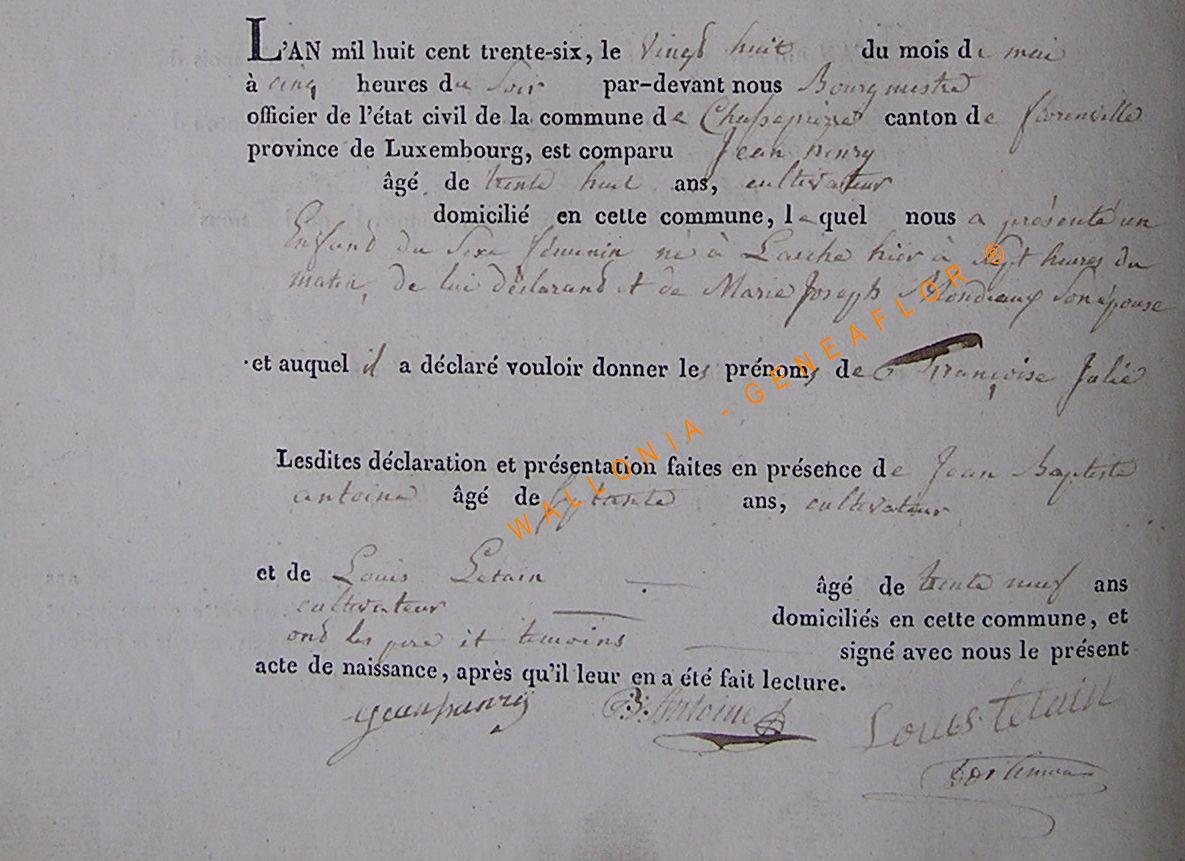 L'AN mil huit cent trente-six, le vingd huit du mois de mai
à cinq heures du soir par-devant nous Bourgmestre
officier de l'état civil de la commune de Chassepierre canton de florenville
province de Luxembourg, est comparu Jean henry
âgé de trente huit ans, cultivateur
domicilié en cette commune, lequel nous a présenté un
Enfand du sexe féminin né à Laiche hier à sept heures du
matin, de lui déclarand et de Marie Joseph son épouse
et auquel il a déclaré vouloir donner les prénoms de Françoise Julie
Lesdites déclaration et présentation faites en présence de Jean Baptiste
antoine âgé de ans, cultivateur
et de Louis Letain âgé de trente neuf ans
cultivateur domiciliés en cette commune, et
ond les pere et temoins signé avec nous le présent
acte de naissance, après qu'il leur en a été fait lecture.
jean henry B. Antoine Louis letain
WALLONIA - GENEAFLOR ®